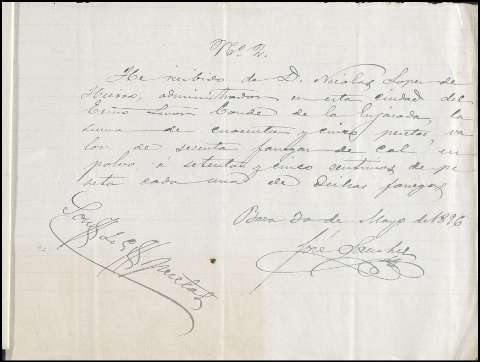 He recibido de D. Nicolas Lopez de
Hierro, administrador en esta ciudad del
Exmo Señor Conde de la Enjarada, la
suma de cuarenta y cinco pesetas va
lor de sesenta fanegas de cal en
polvo á setenta y cinco centimos de pe
seta cada una de dichas fanegas
Baza 20 de Mayo de 1896
José Sanchez
Son 45 pesetas